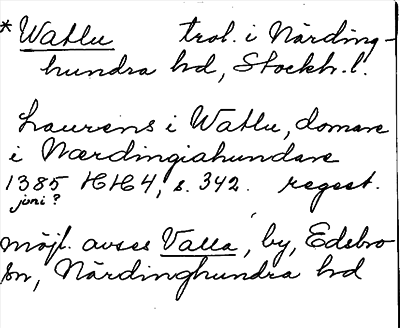 *Watlu trol. i Närding-
hundra hd, Stockh. l.
Laurens i Watlu, domare
i Nærdingiahundare
1385 HH4, s. 342. regest.
juni?
möjl. avses Valla, by, Edsbro
sn, Närdinghundra hd